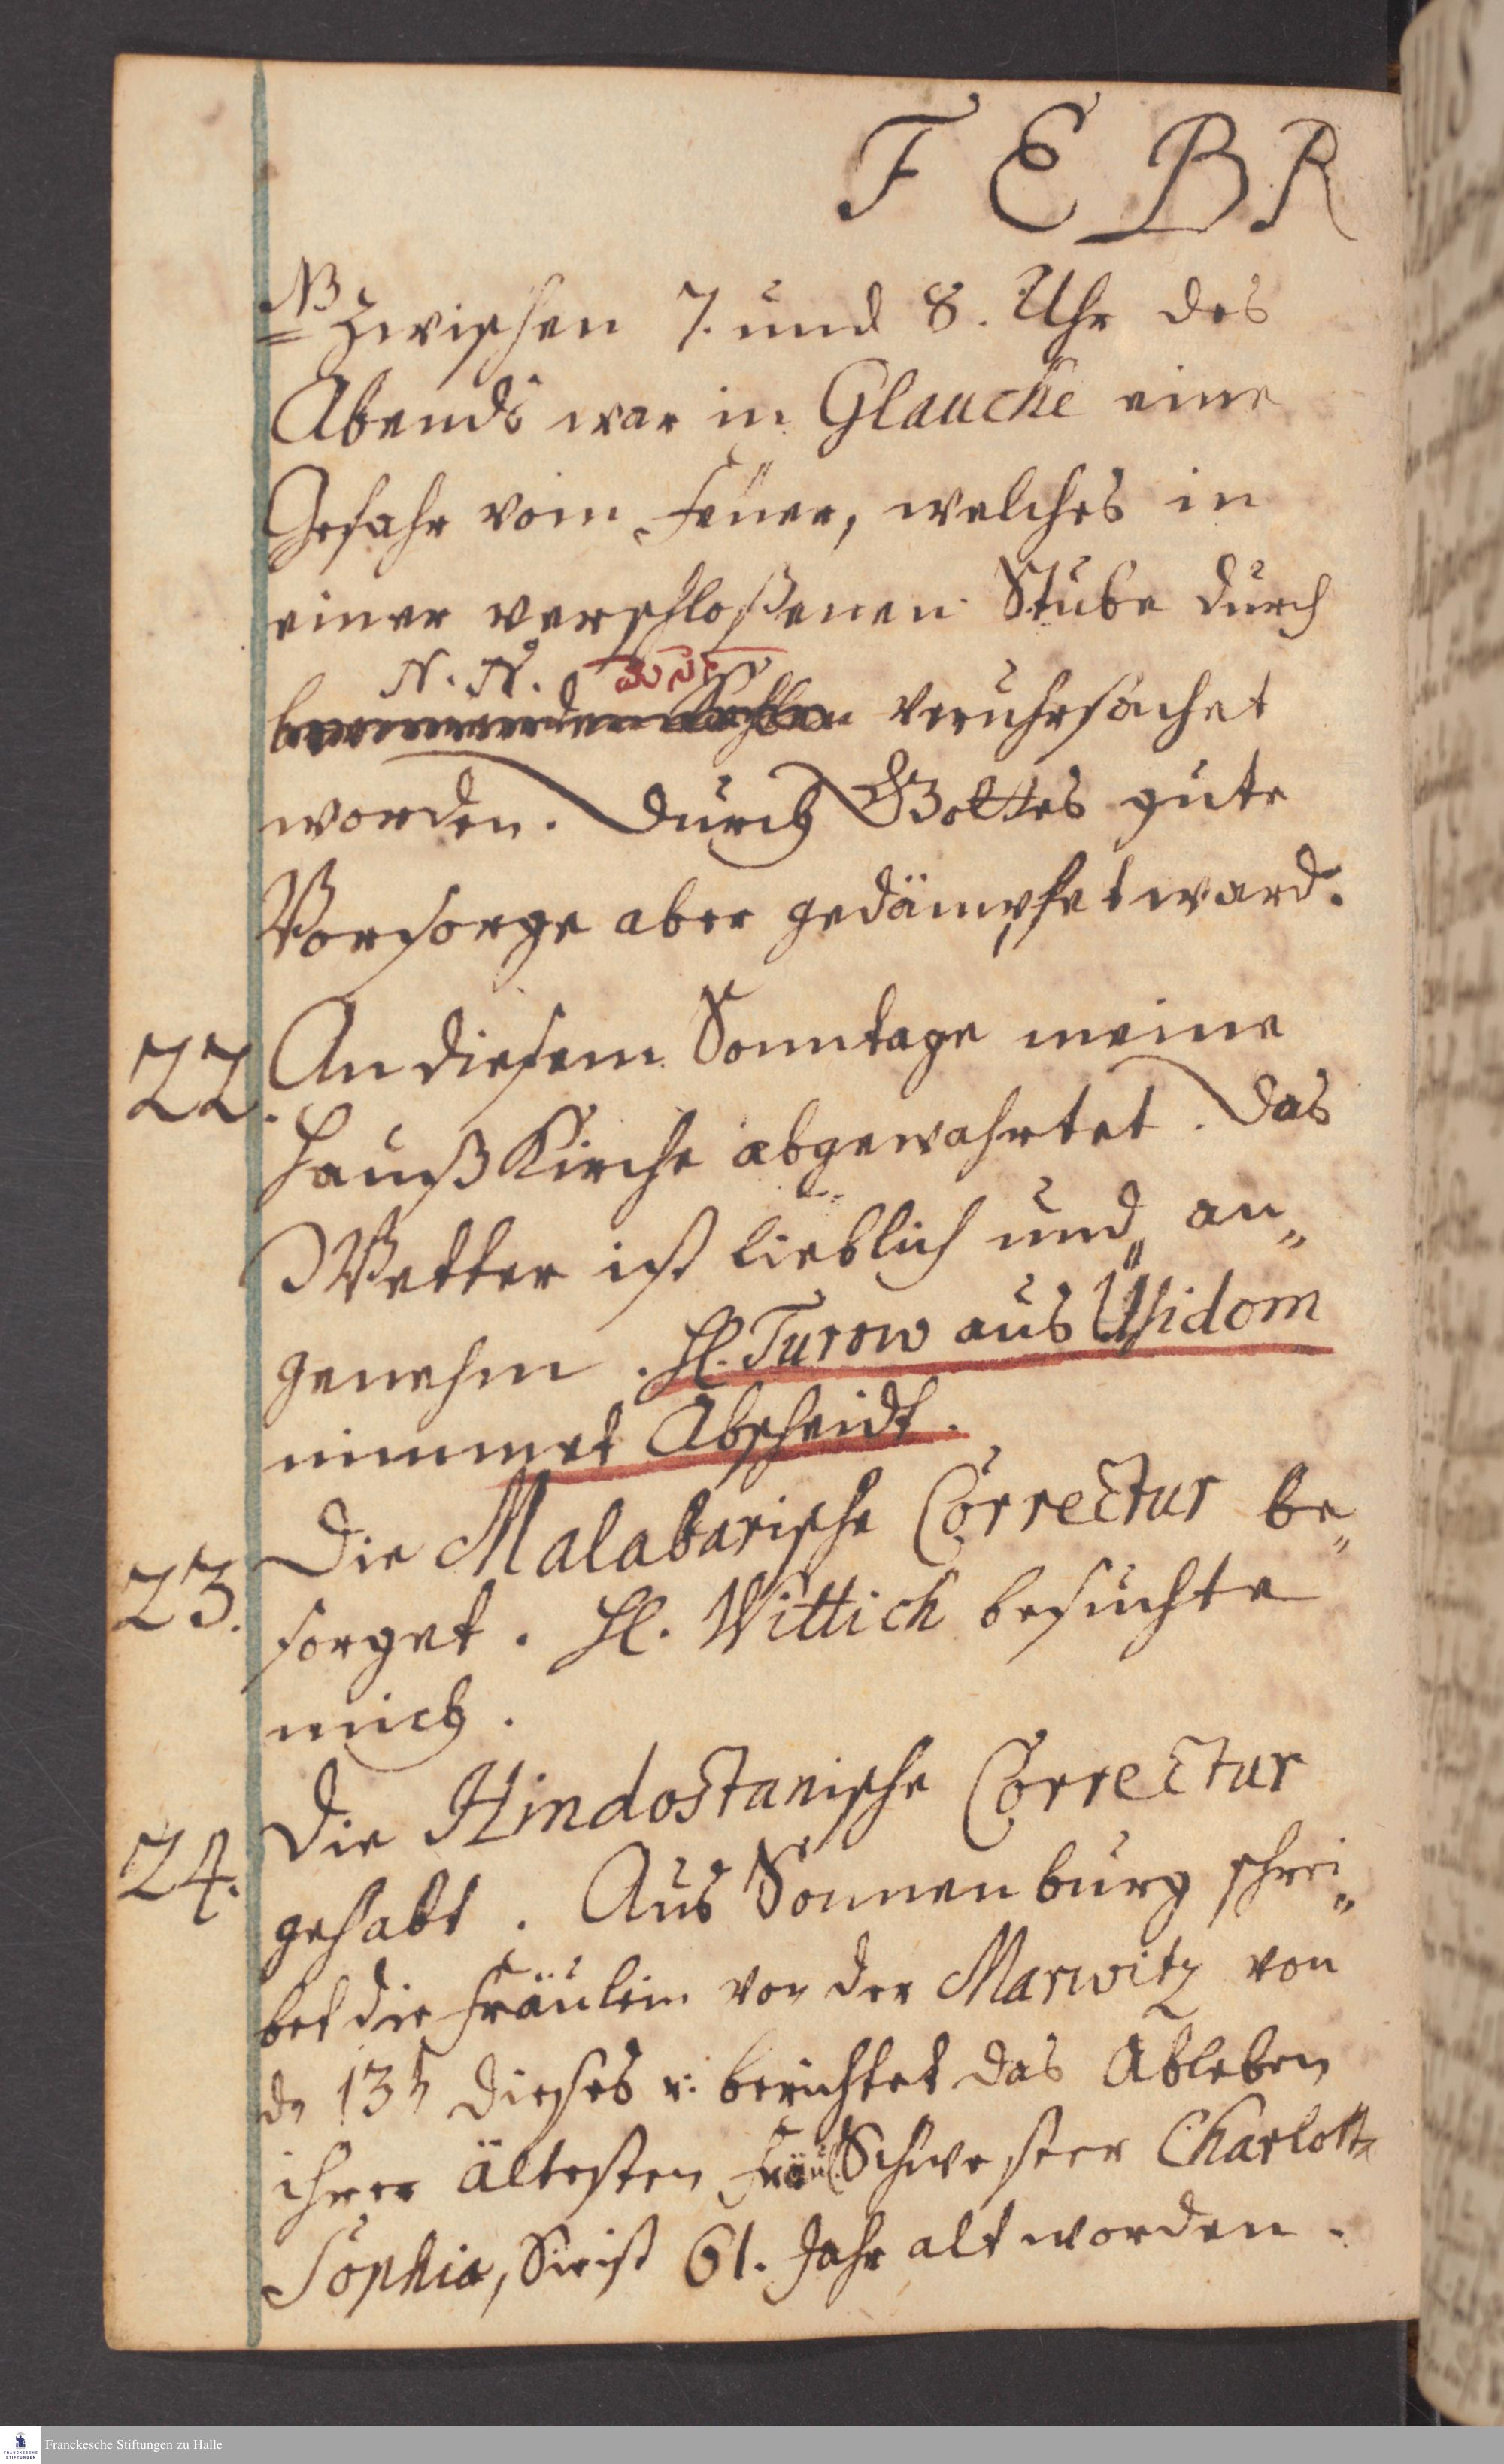 F E B R
NB Zwischen 7. und 8. Uhr des
Abends war in Glaucke eine
Gefahr vom Feuer, welches in
einer verschloßenen Stube durch
N. N.
veruhrsachet
worden. Durch Gottes gute
Vorsorge aber gedämpfet ward.
22. An diesem Sonntage meine
Hauß Kirche abgewahrtet. Das
Wetter ist lieblich und an„
genehm. H. Turow aus Usidom
nimmet Abscheidt.
23. Die Malabarische Correctur be„
sorget. H. Wittich besuchte
mich.
24. Die Hindostanische Correctur
gehabt. Aus Sonnenburg schrei„
bet die Fräulein von der Marwitz von
dn 13t dieses v: berichtet das Ableben
ihrer ältesten Fräul. Schwester Charlotte
Sophia, Sie ist 61. Jahr alt worden.
Franckesche Stiftungen zu Halle